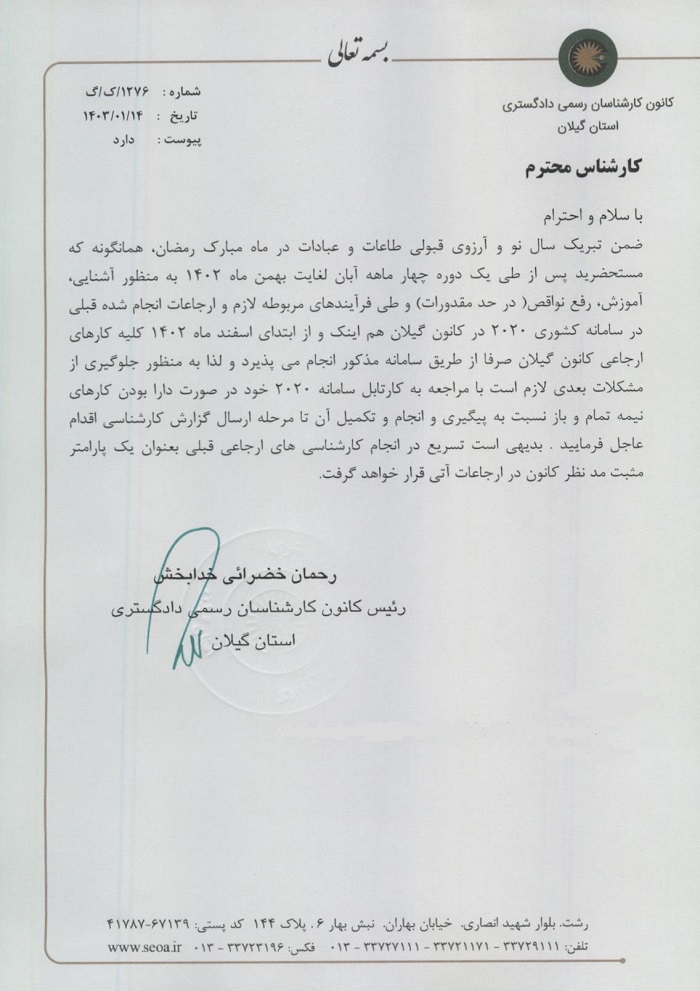 بسمه تعالی
کانون کارشناسان رسمی دادگستری
استان گیلان
شماره : ۱۲۷۶/ک/گ
تاریخ : ۱۴۰۳/۰۱/۱۴
پیوست : دارد
کارشناس محترم
با سلام و احترام
ضمن تبریک سال نو و آرزوی قبولی طاعات و عبادات در ماه مبارک رمضان، همانگونه که
مستحضرید پس از طی یک دوره چهار ماهه آبان لغایت بهمن ماه ۱۴۰۲ به منظور آشنایی،
آموزش، رفع نواقص( در حد مقدورات) و طی فرآیندهای مربوطه لازم و ارجاعات انجام شده قبلی
در سامانه کشوری ۲۰۲۰ در کانون گیلان هم اینک و از ابتدای اسفند ماه ۱۴۰۲ کلیه کارهای
ارجاعی کانون گیلان صرفا از طریق سامانه مذکور انجام می پذیرد و لذا به منظور جلوگیری از
مشکلات بعدی لازم است با مراجعه به کارتابل سامانه ۲۰۲۰ خود در صورت دارا بودن کارهای
نیمه تمام و باز نسبت به پیگیری و انجام و تکمیل آن تا مرحله ارسال گزارش کارشناسی اقدام
عاجل فرمایید . بدیهی است تسریع در انجام کارشناسی های ارجاعی قبلی بعنوان یک پارامتر
مثبت مد نظر کانون در ارجاعات آتی قرار خواهد گرفت.
رحمان خضرائی خدابخش
رئیس کانون کارشناسان رسمی دادگستری
استان گیلان
رشت. بلوار شهید انصاری. خیابان بهاران. نبش بهار ۶. پلاک ۱۴۴ کد پستی: ۶۷۱۳۹-۴۱۷۸۷
تلفن: ۳۳۷۲۹۱۱۱ - ۳۳۷۲۱۱۷۱ - ۳۳۷۲۷۱۱۱ - ۰۱۳ فکس: ۳۳۷۲۳۱۹۶ - ۰۱۳ www.seoa.ir